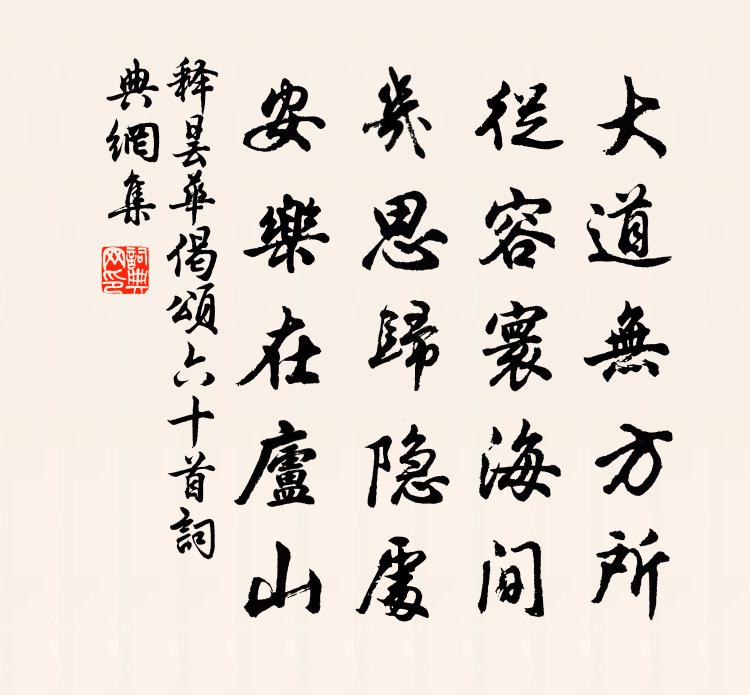 大道無方所
從容寰海間
幾思歸隐處
安樂在廬山
释曇華偈頌六十首詞
典網集
詞典
网印